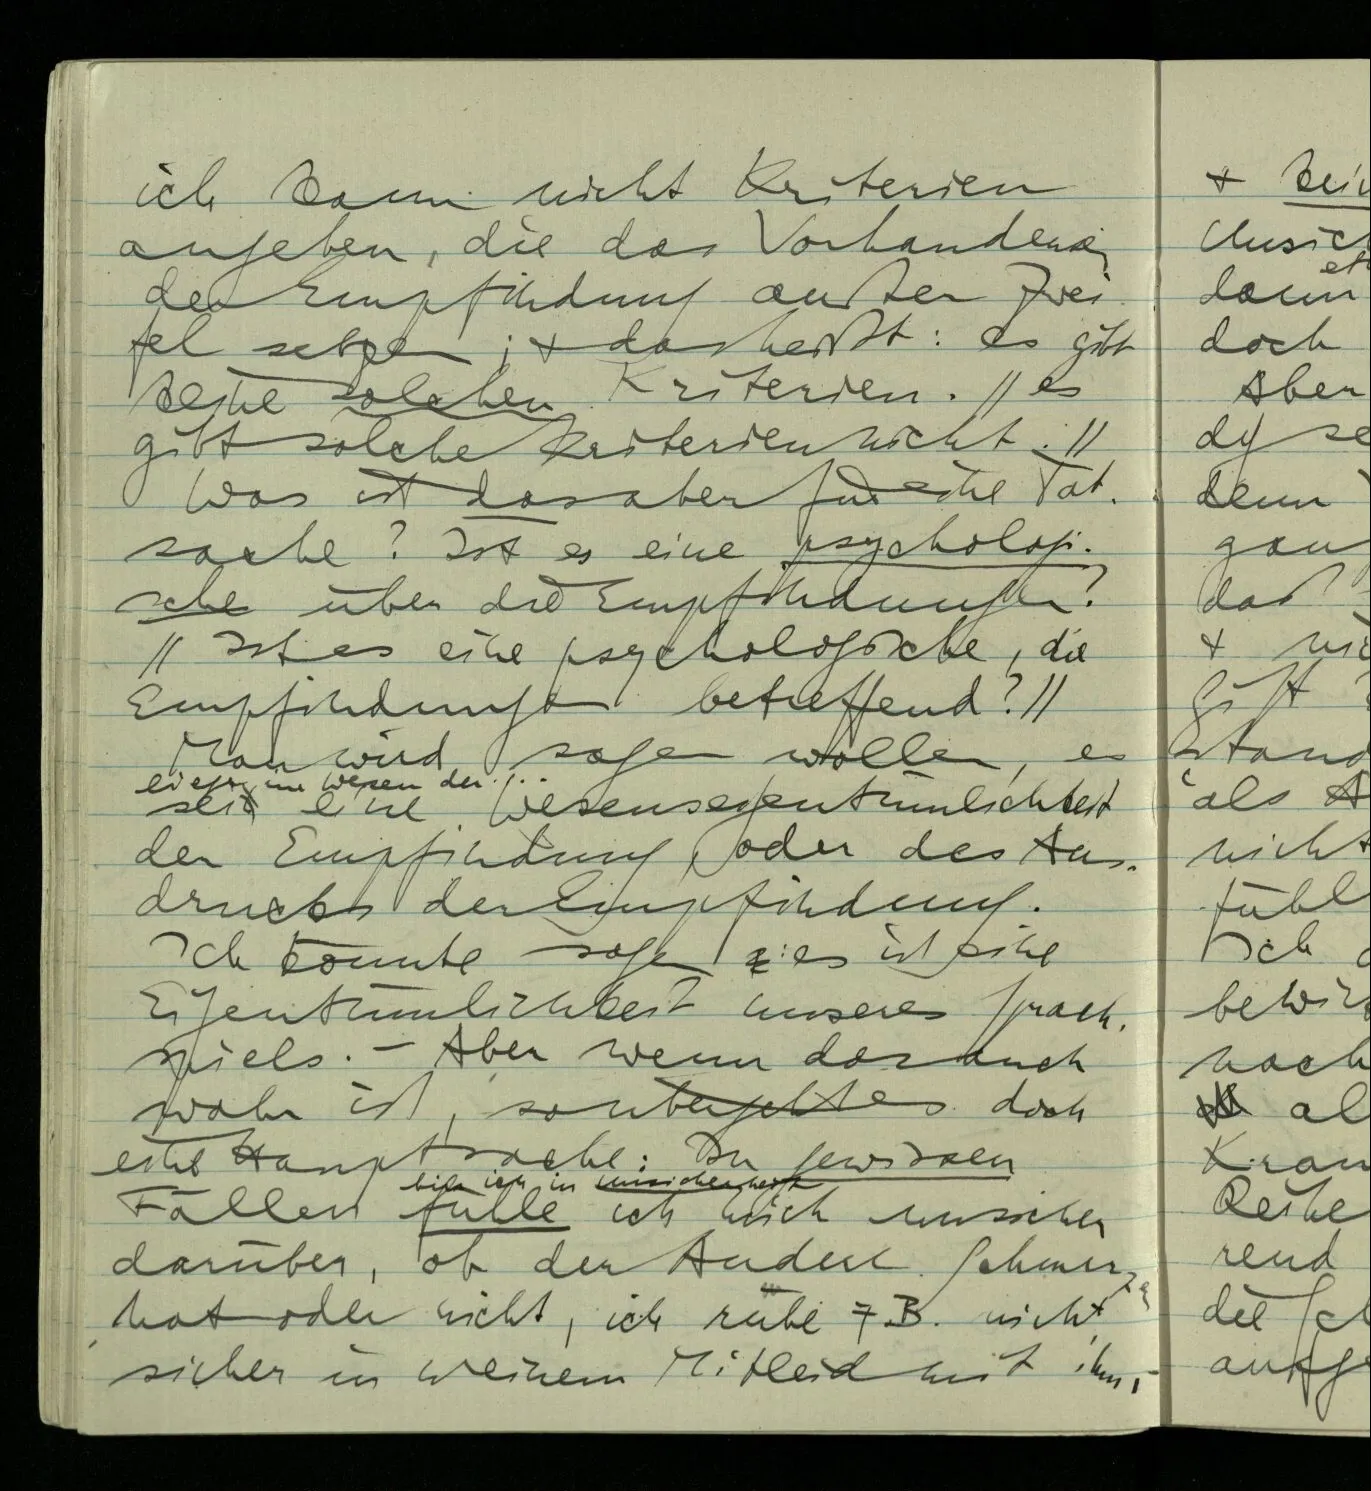 ich kann nicht Kriterien
angeben, die das Vorhandensein
der Empfindung außer Zwei
fel setzen; + das heißt: es gibt
keine solchen Kriterien. // es
gibt solche Kriterien nicht. //
Was ist das aber für eine Tat-
sache? Ist es eine psychologi-
sche über die Empfindungen?
// Ist es eine psychologische, die
Empfindungen betreffend? //
Man wird sagen wollen, es
liege im Wesen der . . .
sei eine Wesenseigentümlichkeit
der Empfindung, oder des Aus-
drucks der Empfindung.
Ich könnte sagen: es ist eine
Eigentümlichkeit unseres Sprach-
spiels. – Aber wenn das auch
wahr ist, so es doch
eine Hauptsache: In gewissen
bin ich in Unsicherheit
Fällen fühle ich mich unsicher
darüber, ob der Andere Schmerzen
hat oder nicht, ich ruhe z.B. nicht
sicher in meinem Mitleid mit ihm, –
+ kein
dann
doch
Aber
se
denn
das
+
als
nicht
Ich
al
rend
die